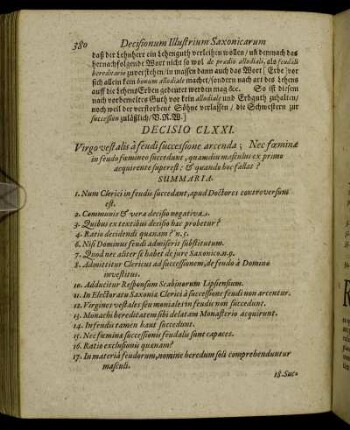 380 Decisionum Illustrium Saxonicarum
daß der Lehnherr ein Lehenguth verleihen wollen / und demnach das
hernachfolgende Wort nicht so wol de prædio allodiali, als feudali
hereditario zuverstehen / in massen dann auch das Wort [Erbe] vor
sich allein kein bonum allodiale machet / sondern nach art des Lehens
auff die LehensErben gedeutet werden mag &c. So ist diesem
nach vorbemeltes Guth vor kein allodial, und Erbguth zuhalten /
noch weil der verstorbene Söhne verlassen / die Schwestern zur
succession zuläßlich / V.R.W.]
DECISIO CLXXI.
Virgo vestalis à feudi successione arcenda; Nec fœminæ
in feudo fœmineo succedunt, quamdiu masculus ex primo
acquirente superest: & quando hoc fallat?
SUMMARIA.
1. Num Clerici in feudis succedant, apud Doctores controversum
est.
2. Communis & vera decisio negativa.
3. Quibus ex textibus decisio hæc probetur?
4. Ratio decidendi quænam? n. 5.
6. Nisi Dominus feudi admiserit substitutum.
7. Quod nec aliter se habet de jure Saxonico. n. 9.
8. Admittitur Clericus ad successionem, de feudo à Domino
investitus.
10. Adducitur Responsum Scabinorum Lipsensium.
11. In Electoratu Saxonia Clerici à successione feudi non arcentur.
12. Virgines vestales seu moniales in feudis non succedunt.
13. Monachi hereditatem sibi delatam Monasterio acquirunt.
14. In feudis tamen haut succedunt.
15. Nec fœminæ successionis feudalis sunt capaces.
16. Ratio exclusionis quænam?
17. In materiâ feudorum, nomine heredum soli comprehenduntur
masculi.
18. Suc-